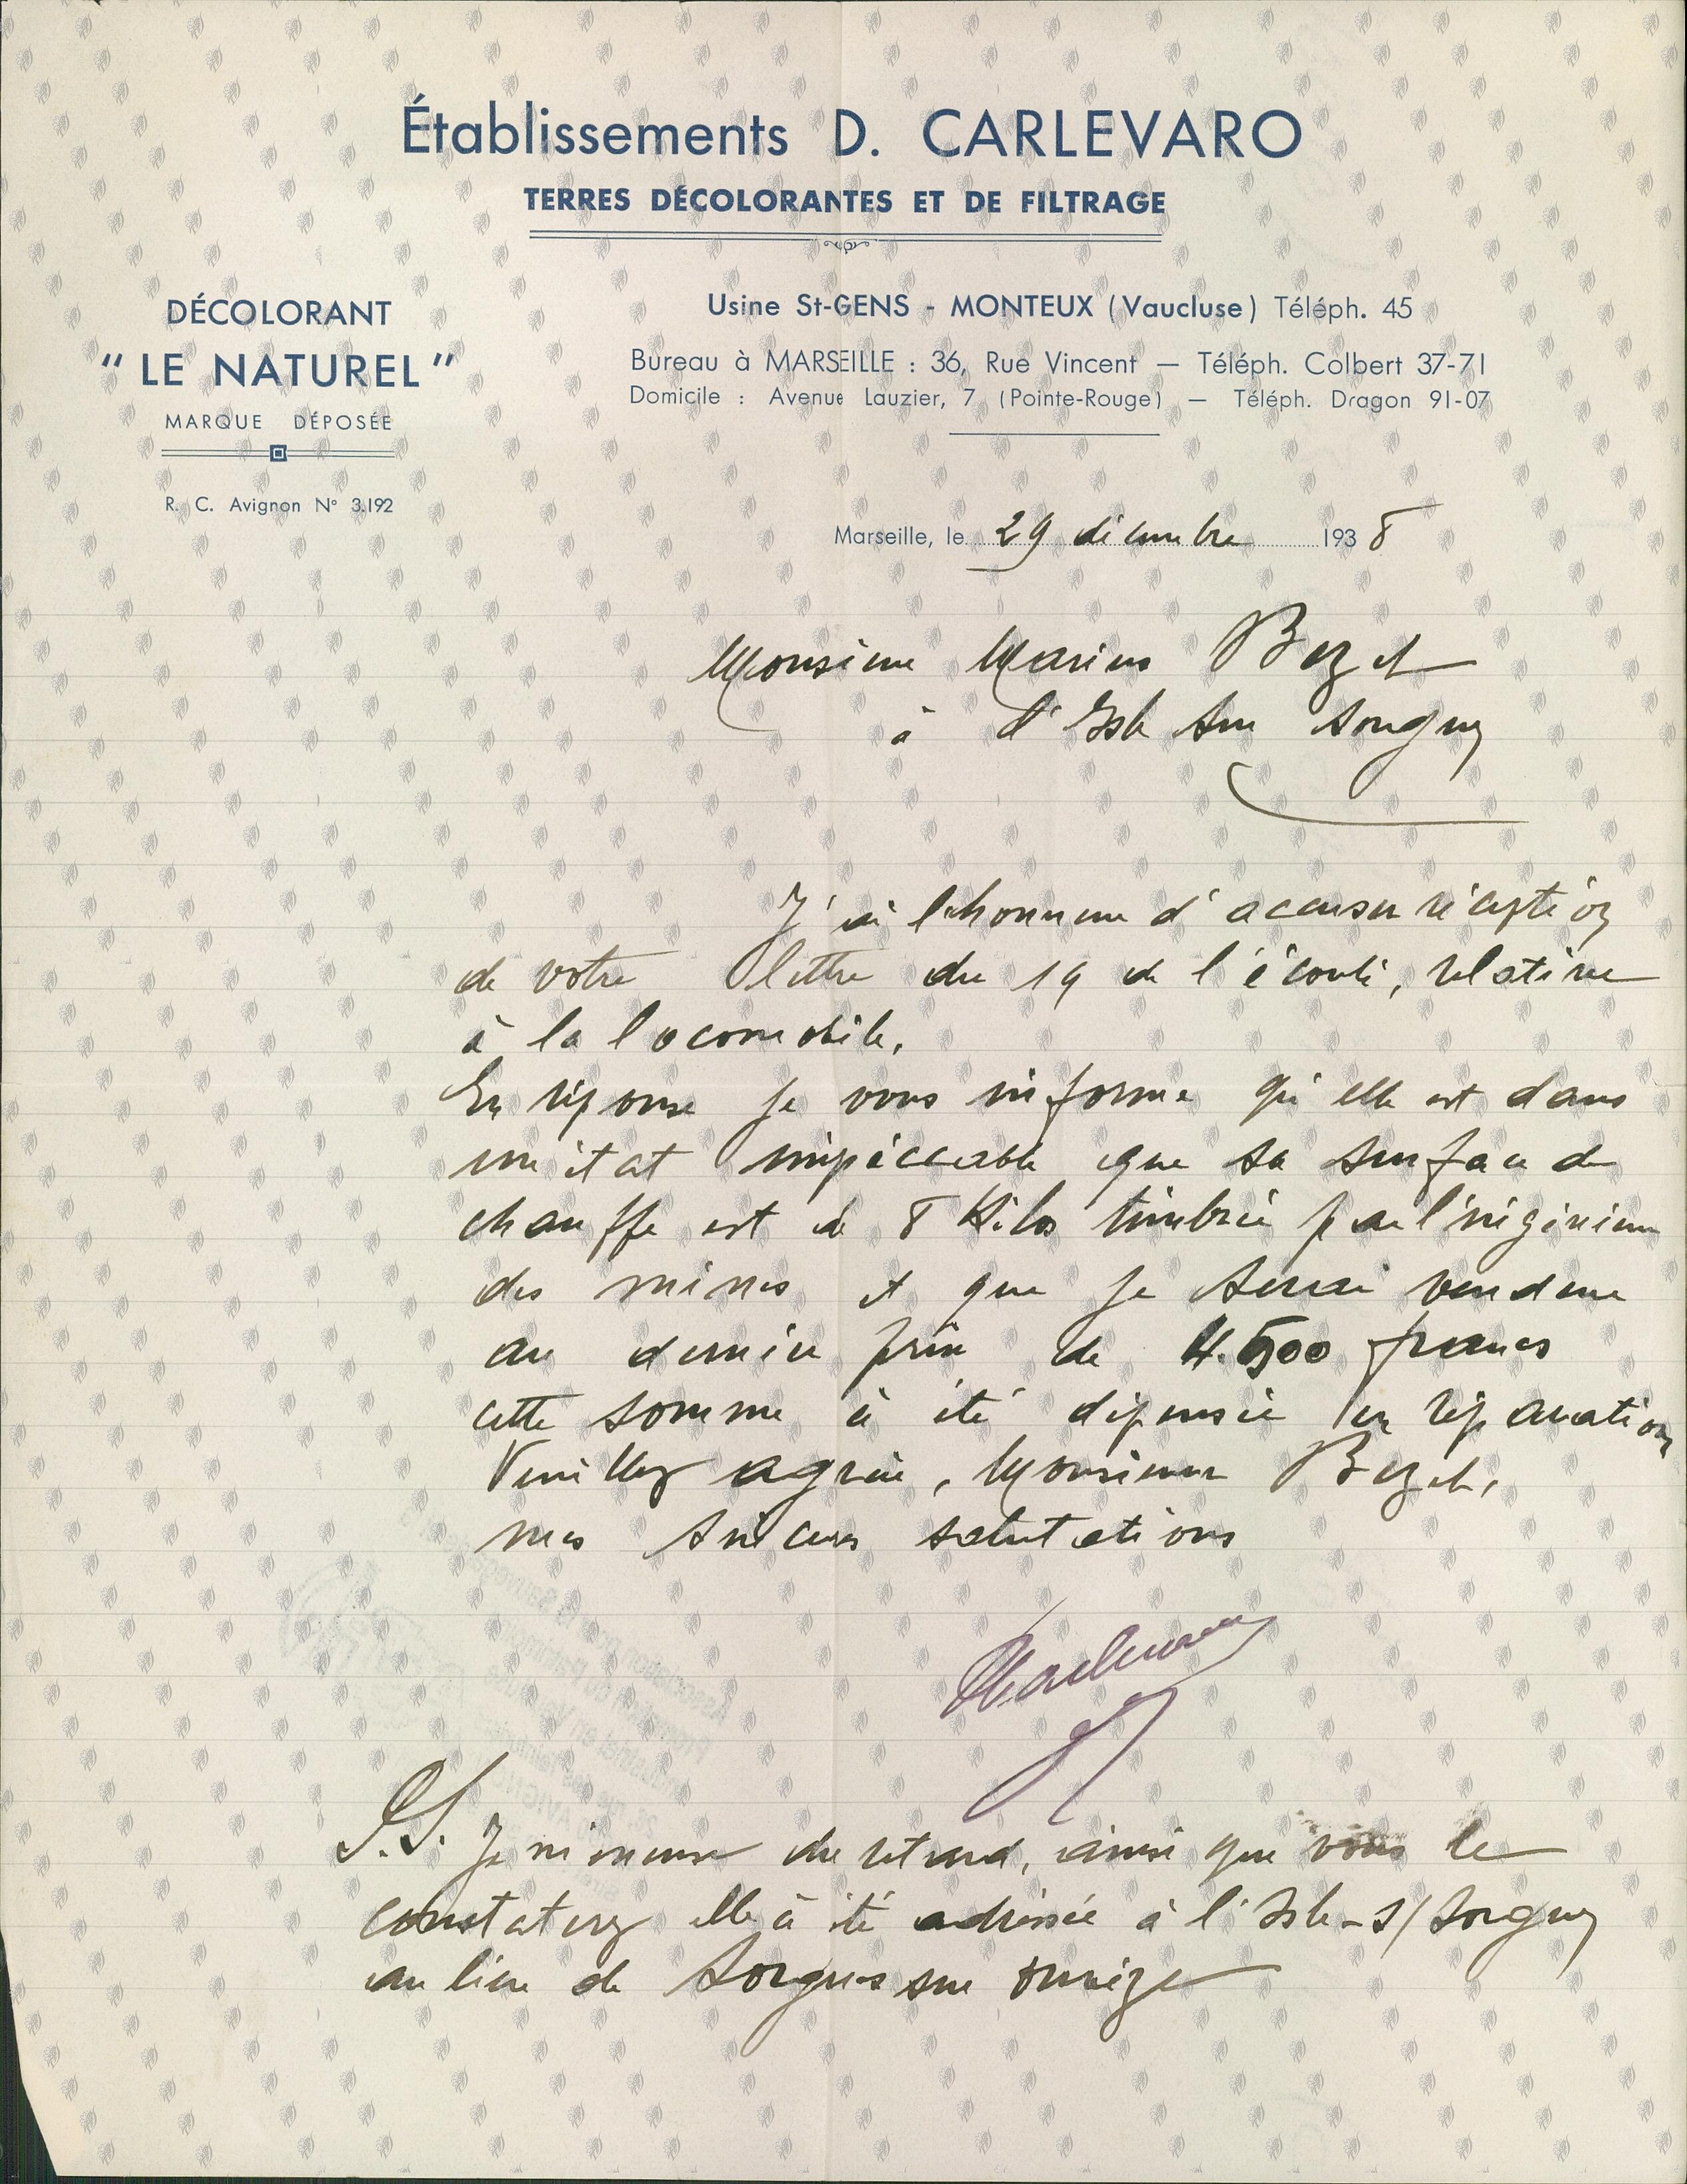 Établissements D. CARLEVARO
TERRES DÉCOLORANTES ET DE FILTRAGE
DÉCOLORANT
" LE NATUREL "
MARQUE DÉPOSÉE
R. C. Avignon N° 3.192
Usine St-GENS - MONTEUX (Vaucluse) Téléph. 45
Bureau à MARSEILLE : 36, Rue Vincent — Téléph. Colbert 37-71
Domicile : Avenue Lauzier, 7 (Pointe-Rouge) — Téléph. Dragon 91-07
Marseille, le 29 décembre 1938
Monsieur Marius Bezet
à l'Isle sur Sorgues
J'ai l'honneur d'accuser réception
de votre lettre du 19 de l'écoulé, relative
à la locomobile.
En réponse je vous informe qu'elle est dans
un état impéccable que sa surface de
chauffe est de 8 Kilos timbrée par l'ingénieur
des mines et que je serai vendeur
au dernier prix de 4.500 francs
cette somme à été dépensée en réparation
Veuillez agréer, Monsieur Bezet,
mes sincères salutations
Carlevaro
P.S. Je m'excuse du retard, ainsi que vous le
constaterez elle à été adréssée à l'Isle-s/Sorgues
au lieu de Sorgues sur ouvèze